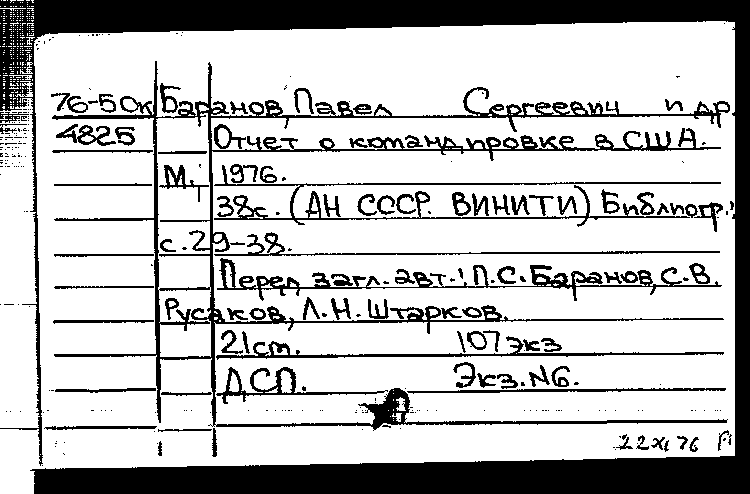 76-5Ок Баранов, Павел Сергеевич и др.
4825 Отчет о командировке в США.
М., 1976.
38с. (АН СССР. ВИНИТИ) Библиогр.:
с.29-38.
Перед загл. авт.: П.С. Баранов, С.В.
Русаков, Л.Н. Штарков.
21см. 107экз
ДСП. Экз.N6.
22 XI 76